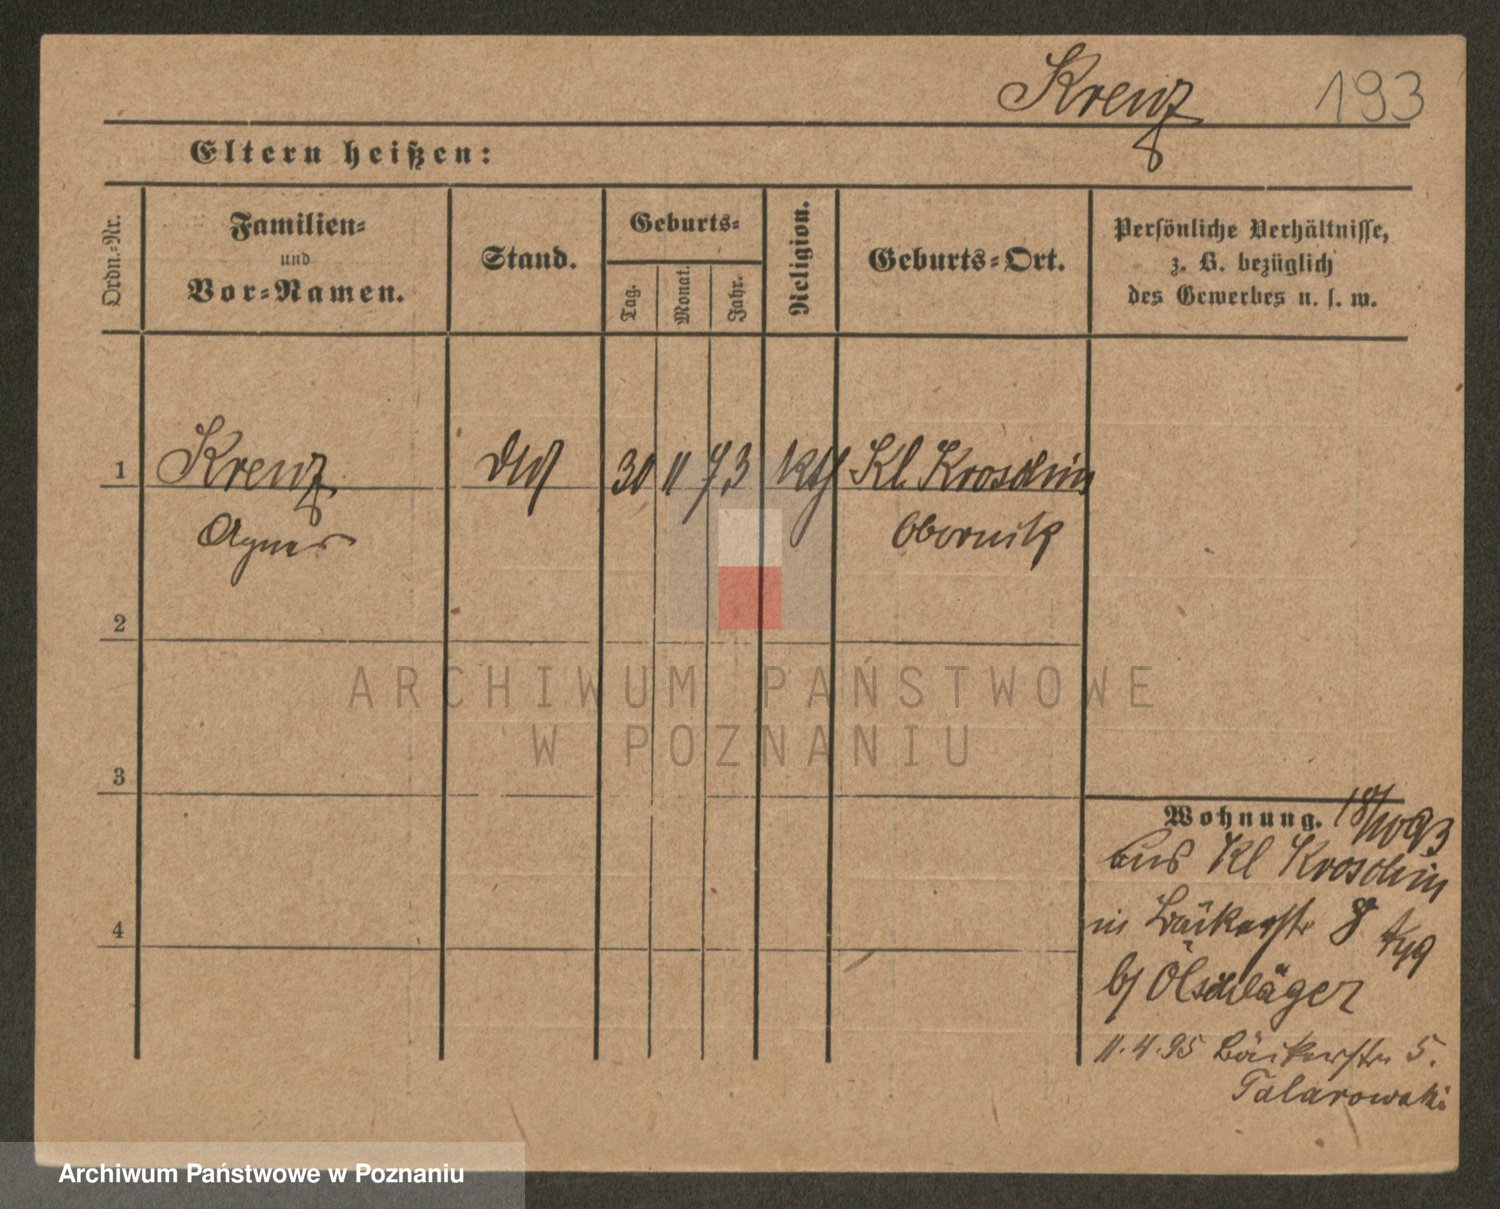 Krenz 193
Eltern heißen:
Ordn.-Nr.
Familien-
und
Vor-Namen.
Stand.
Geburts-
Tag.
Monat.
Jahr.
Religion.
Geburts-Ort.
Persönliche Verhältnisse,
z. B. bezüglich
des Gewerbes u. s. w.
1 Krenz 30 11 73 kth Kl. Kroschin
Agnes Obornik
2
3
4
Wohnung. 18/10 93
aus Kl Kroschin
in Bäckerstr 8
b/ Ölschläger
11.4.95 Bäckerstr. 5.
Talarowski
ARCHIWUM PAŃSTWOWE
W POZNANIU
Archiwum Państwowe w Poznaniu